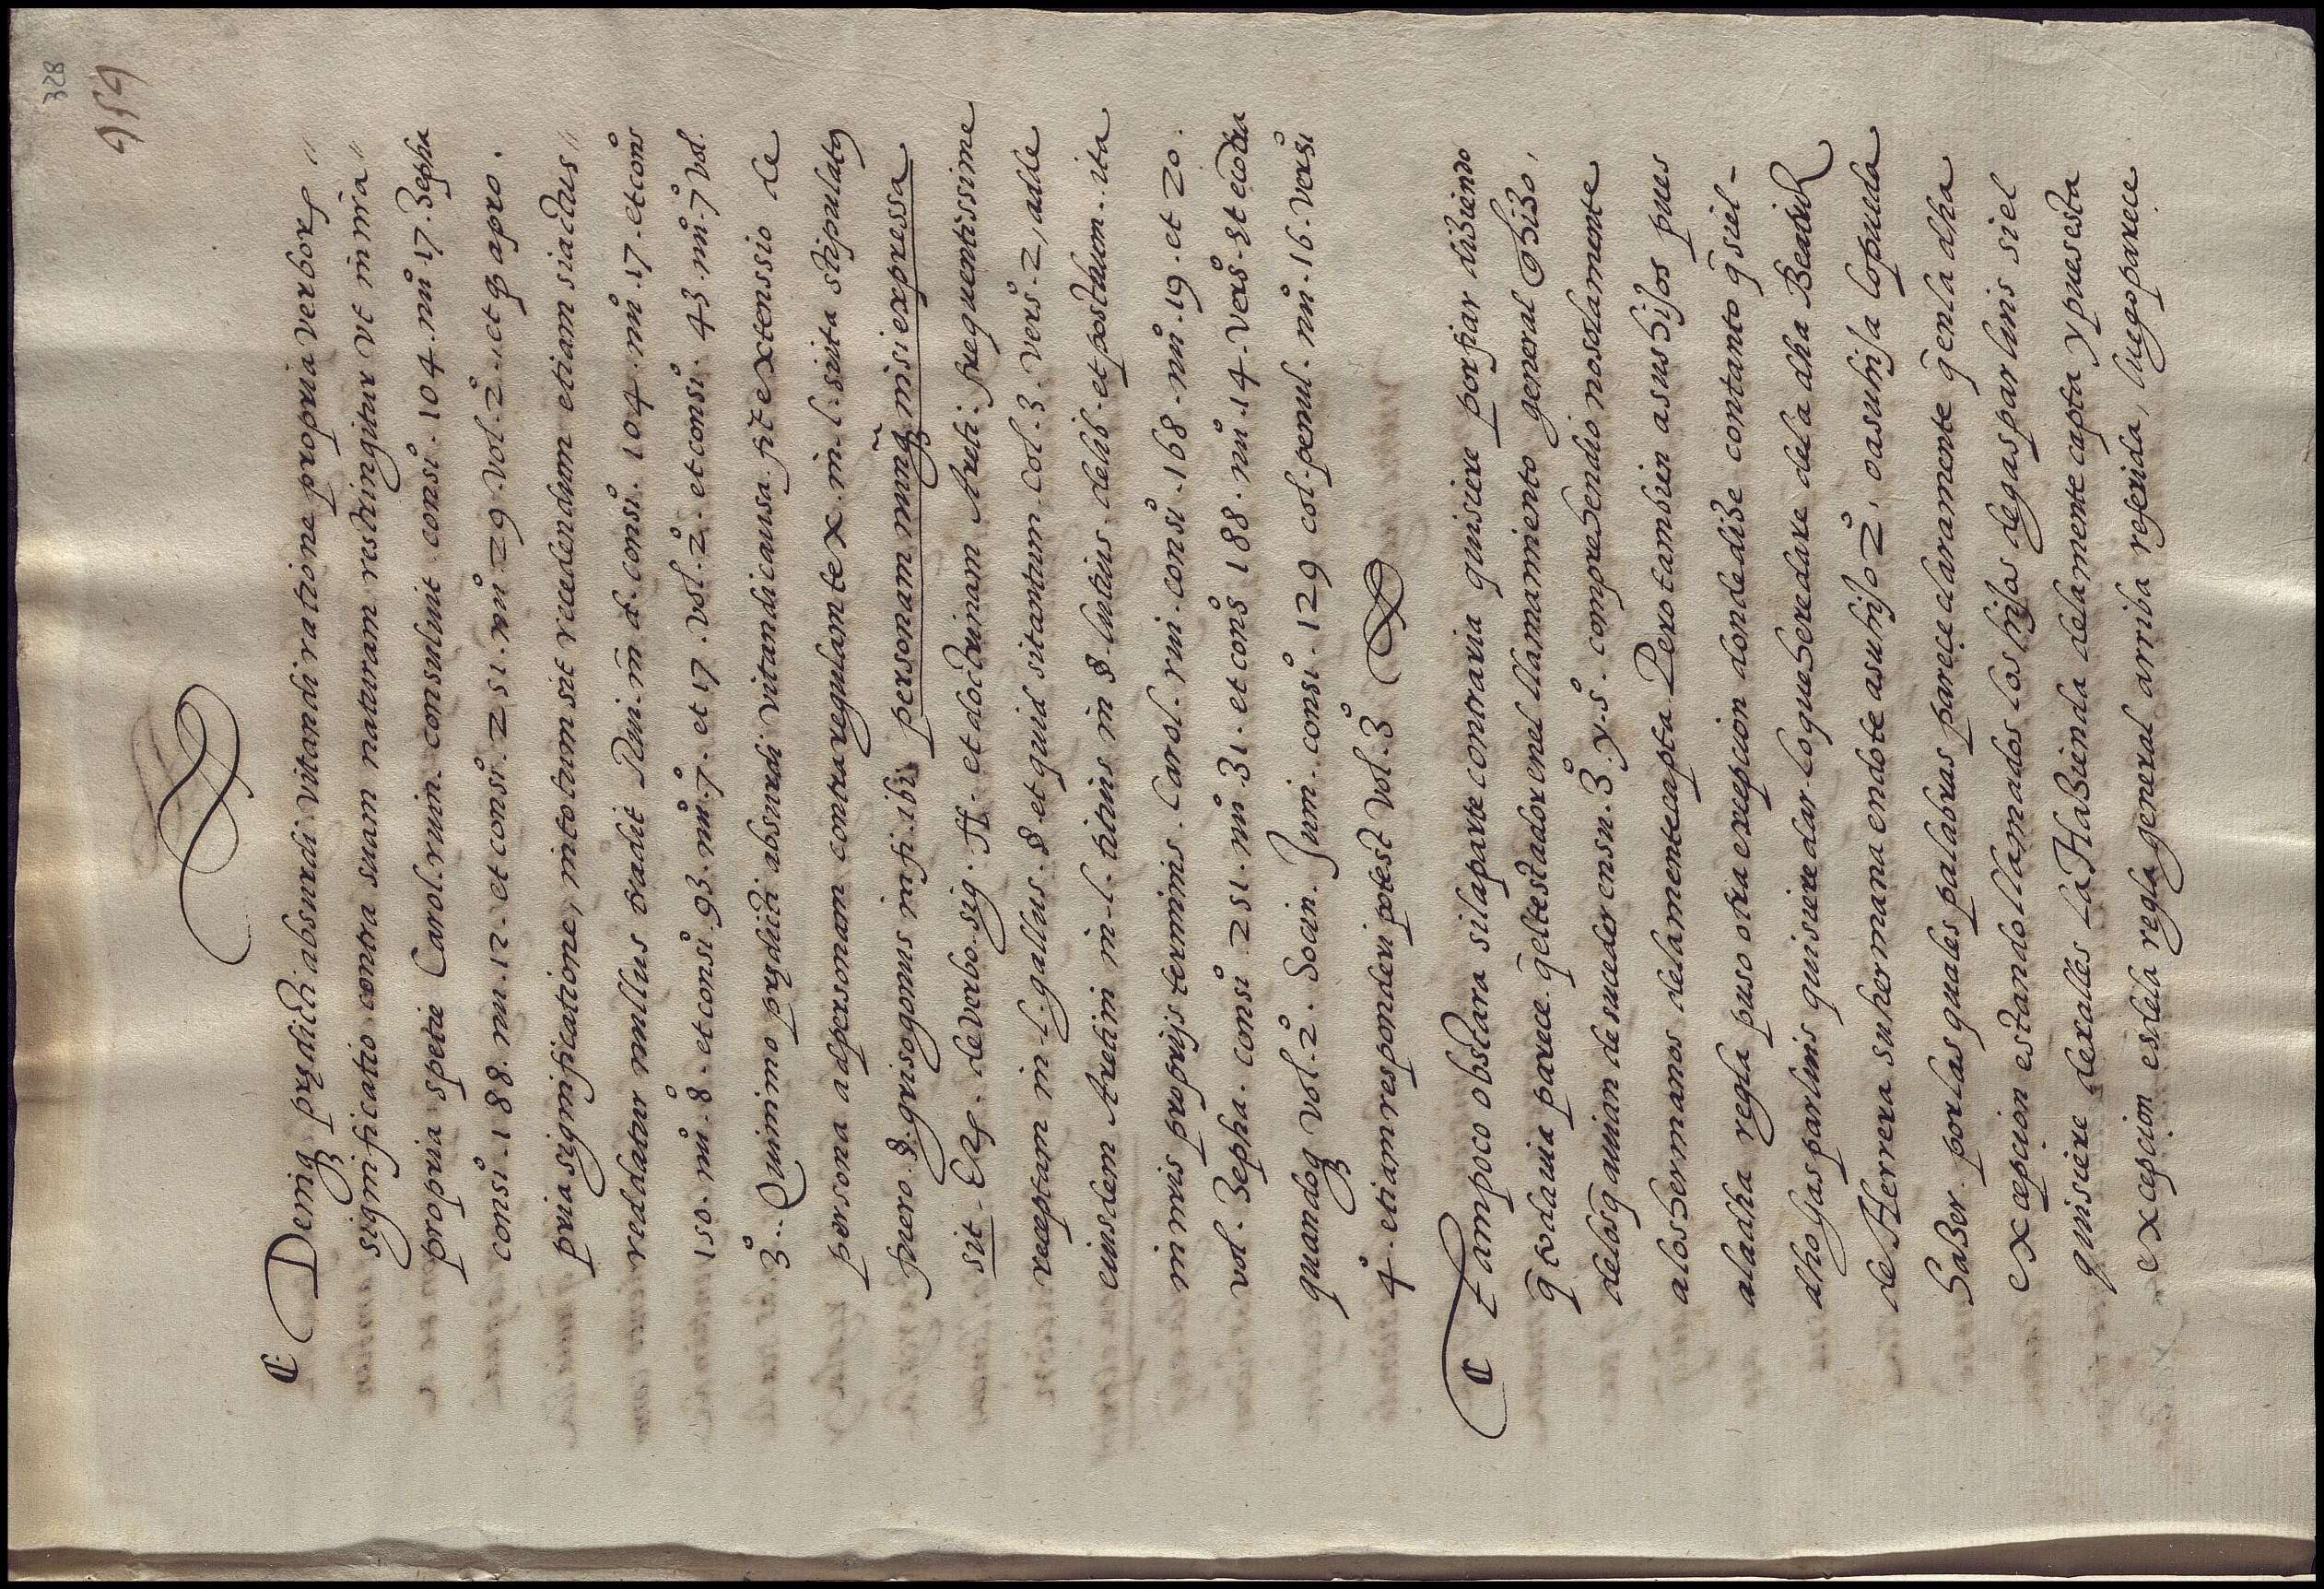 328
959
₵ Deniq₃ prędicti absurdi vitandi ratione propria verborꝝ //
significatio contra suam naturam restringitur vt in nr̃a //
propria spetie Carol. ruin. consuluit consi.º 104. nu.º 17. Zepha
consi.º 188. nu. 12. et consi.º 251. nu.º 29 vol. 2.º, et ꝙ apro.
pria significatione, in totum sit recedendum etiam si actus //
reddatur nullus tradit Rui. in d. consi.º 104. nu.º 17. et consº
150. nu.º 8. et consi.º 93. nu.º 7. et 17. vol. 2.º et consi.º 43. nu.º 7 vol.
3.º. Quinimo prędicti absurdi vitandi causa fit extenssio de
persona ad personam contra regulam tex. in. l. si ita stipulatꝰ
fuero. §. grisogonus in fi. ibi. personam nunq̃₃ nisi expressa
sit. & ꝝ. de verbo. sig. ff. et doctrinam Areti. frequentissime
receptam in. l. gallus. § et quid si tantum. col. 3. vers.º 2, adde
eiusdem Aretim in. l. titius in § lutius. de lib. et postum. ita
in nris proprijs terminis. Carol. rui. consi.º 168. nu.º 19. et 20.
vol. Zepha. consi.º 251. nu.º 31. et consº 188. nu.º 14. versº. st econtra
quandoq₃ vol. 2.º. Socin. Juni. consi.º 129 col. penul. nu.º 16. versi.º
4.º etiam responderi potest vol. 3.º
₵ Tampoco obstara si la parte contraria quisiere porfiar diziendo
q̃ todauia parece. q̃ el testador en el llamamiento general q̃ hizo,
de los q̃ auian de suceder en su. 3.º y. 5.º. comprehendio no solamente
a los hermanos de la mentecapta Pero tambien a sus hijos pues
a la dha regla puso otra excepcion donde dize con tanto q̃ si el -
dho Gaspar luis quisiere dar. lo que heredare de la dha Beatriz
de Herrera su hermana en dote a su hijo 2.º, o a su hija lo pueda
hazer. por las quales palabras pareçe claramente q̃ en la dha
excepcion estando llamados los hijos de gaspar luis si el
quisiere dexalles la Hazienda de la mentecapta y pues esta
excepcion es de la regla general arriba referida, luego parece